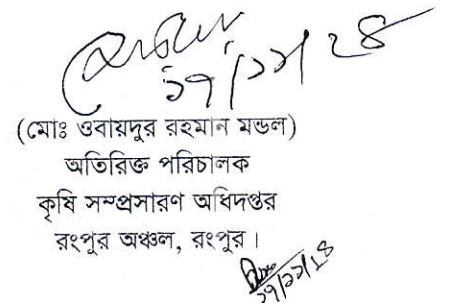 ১৭/১১/২৪
(মোঃ ওবায়দুর রহমান মন্ডল)
অতিরিক্ত পরিচালক
কৃষি সম্প্রসারণ অধিদপ্তর
রংপুর অঞ্চল, রংপুর।
১৭/১১/২৪